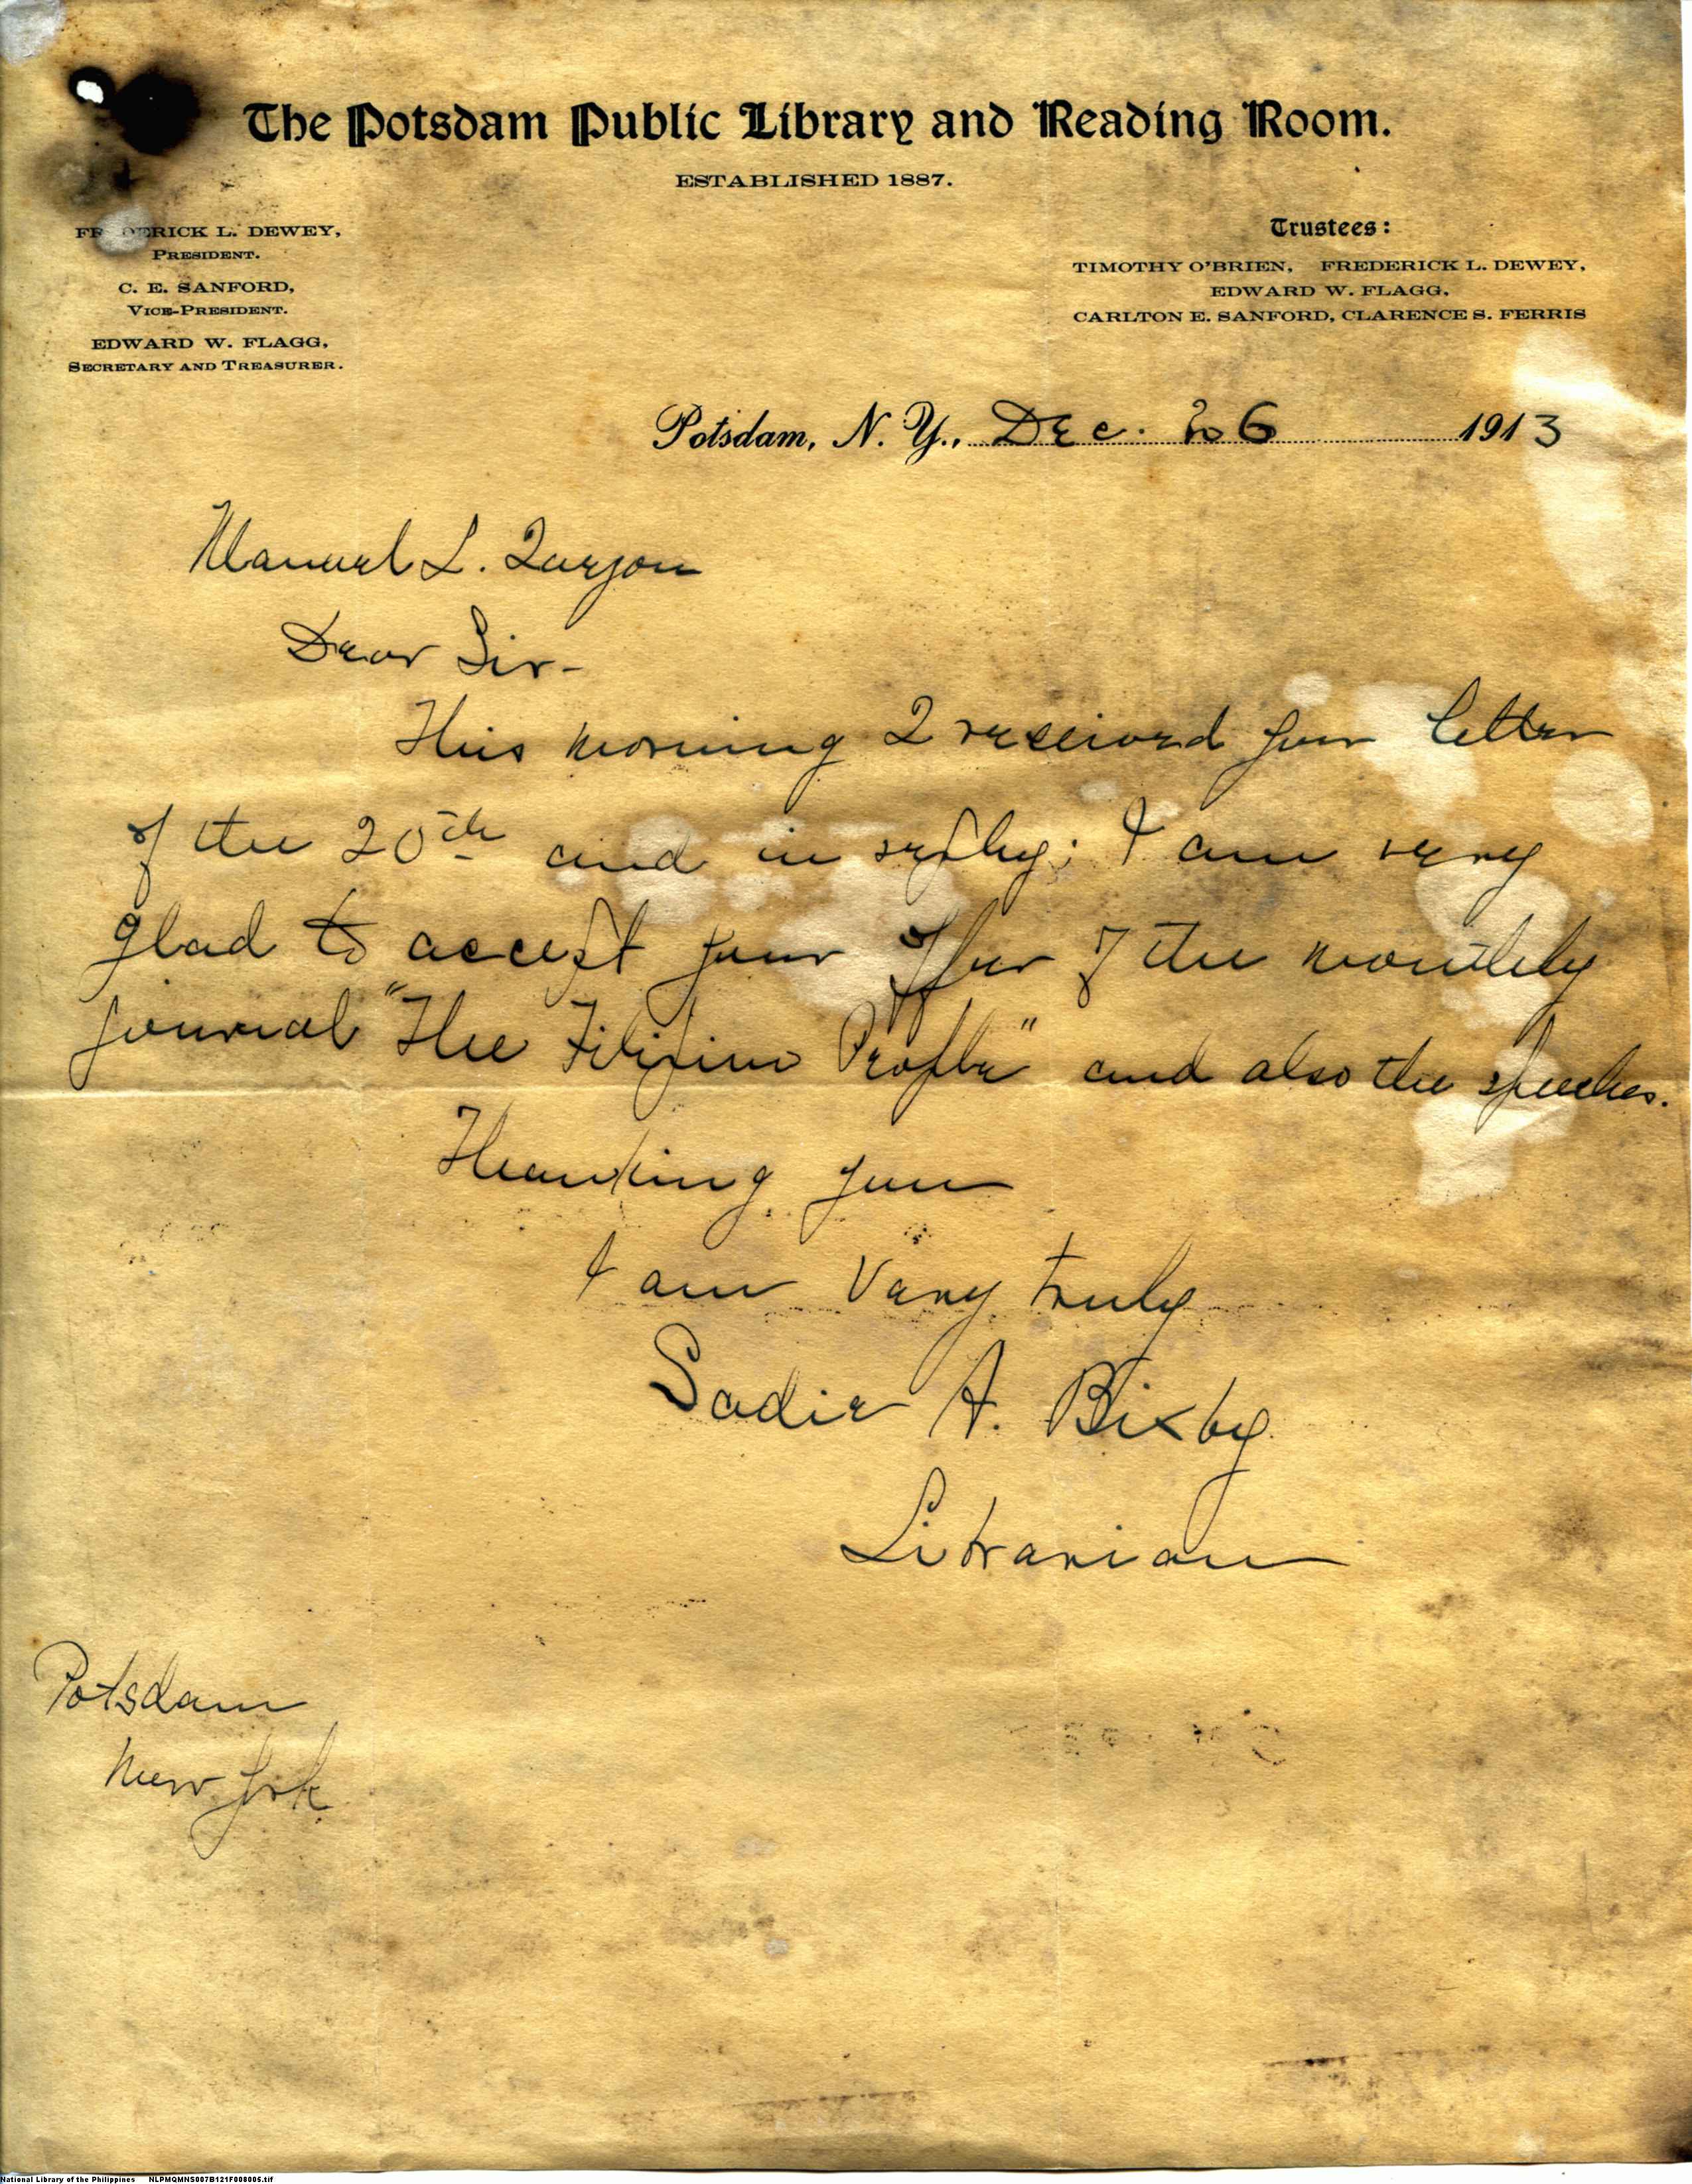 The Potsdam Public Library and Reading Room.
ESTABLISHED 1887.
FREDERICK L. DEWEY,
PRESIDENT.
C. E. SANFORD,
VICE-PRESIDENT.
EDWARD W. FLAGG,
SECRETARY AND TREASURER.
Trustees:
TIMOTHY O'BRIEN, FREDERICK L. DEWEY,
EDWARD W. FLAGG,
CARLTON E. SANFORD, CLARENCE S. FERRIS
Potsdam, N. Y., Dec. 26 1913
Manuel L. Quezon
Dear Sir-
This morning I received your letter
of the 20th and in reply; I am very
glad to accept your offer of the monthly
journal "The Filipino People" and also the speeches.
Thanking you
I am Very truly
Sadie A. Bixby
Librarian
Potsdam
New York
National Library of the Philippines NLPMQMNS007B121F008006.tif